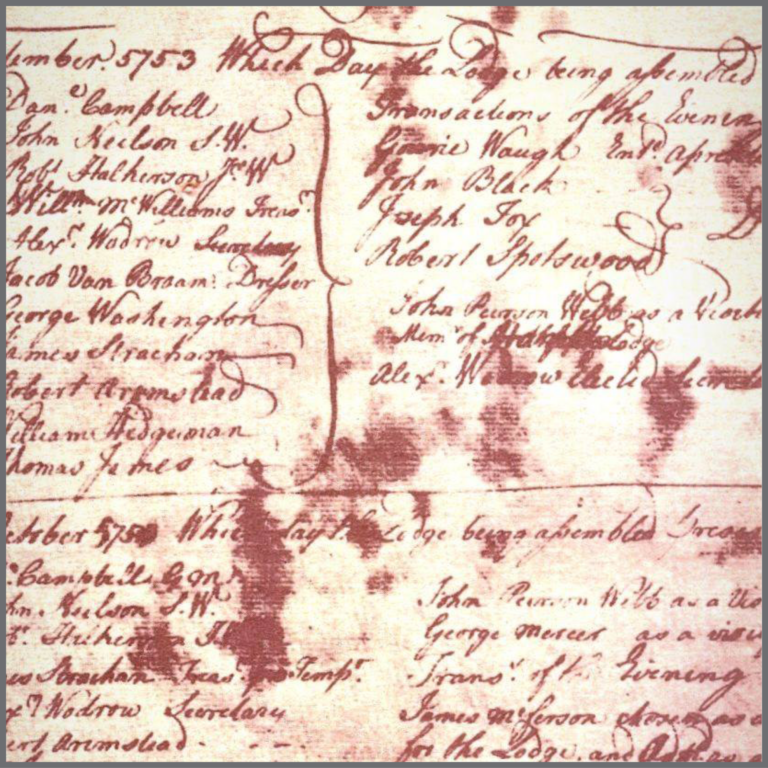 ember. 5753 Which Day the Lodge being assembled
Dan.e Campbell
John Neilson S.W.
Robt Halkerson Jr W
Willm McWilliams Treasr
Alexr. Wodrow Secretary
Jacob Van Braam Dresser
George Washington
James Strachan
Robert Armstead
William Hedgeman
Thomas James
Transactions of the Evenin
Waugh Entd. apren
John Black
Joseph Fox
Robert Spotswood
John Peirson Webb as a Visit
Memr of Lodge
Alexr. Wodrow Elected Secret
ctober 575 Which day the Lodge being assembled Presen
Campbell G M
hn. Neilson S.W.
es Strachan Treasr pro Tempr.
exr Wodrow Secretary
ert Armstead
John Peirson Webb as a Vis
George Mercer as a visi
Transs. of the Evening
James McFerson chosen as a
for the Lodge. and as a